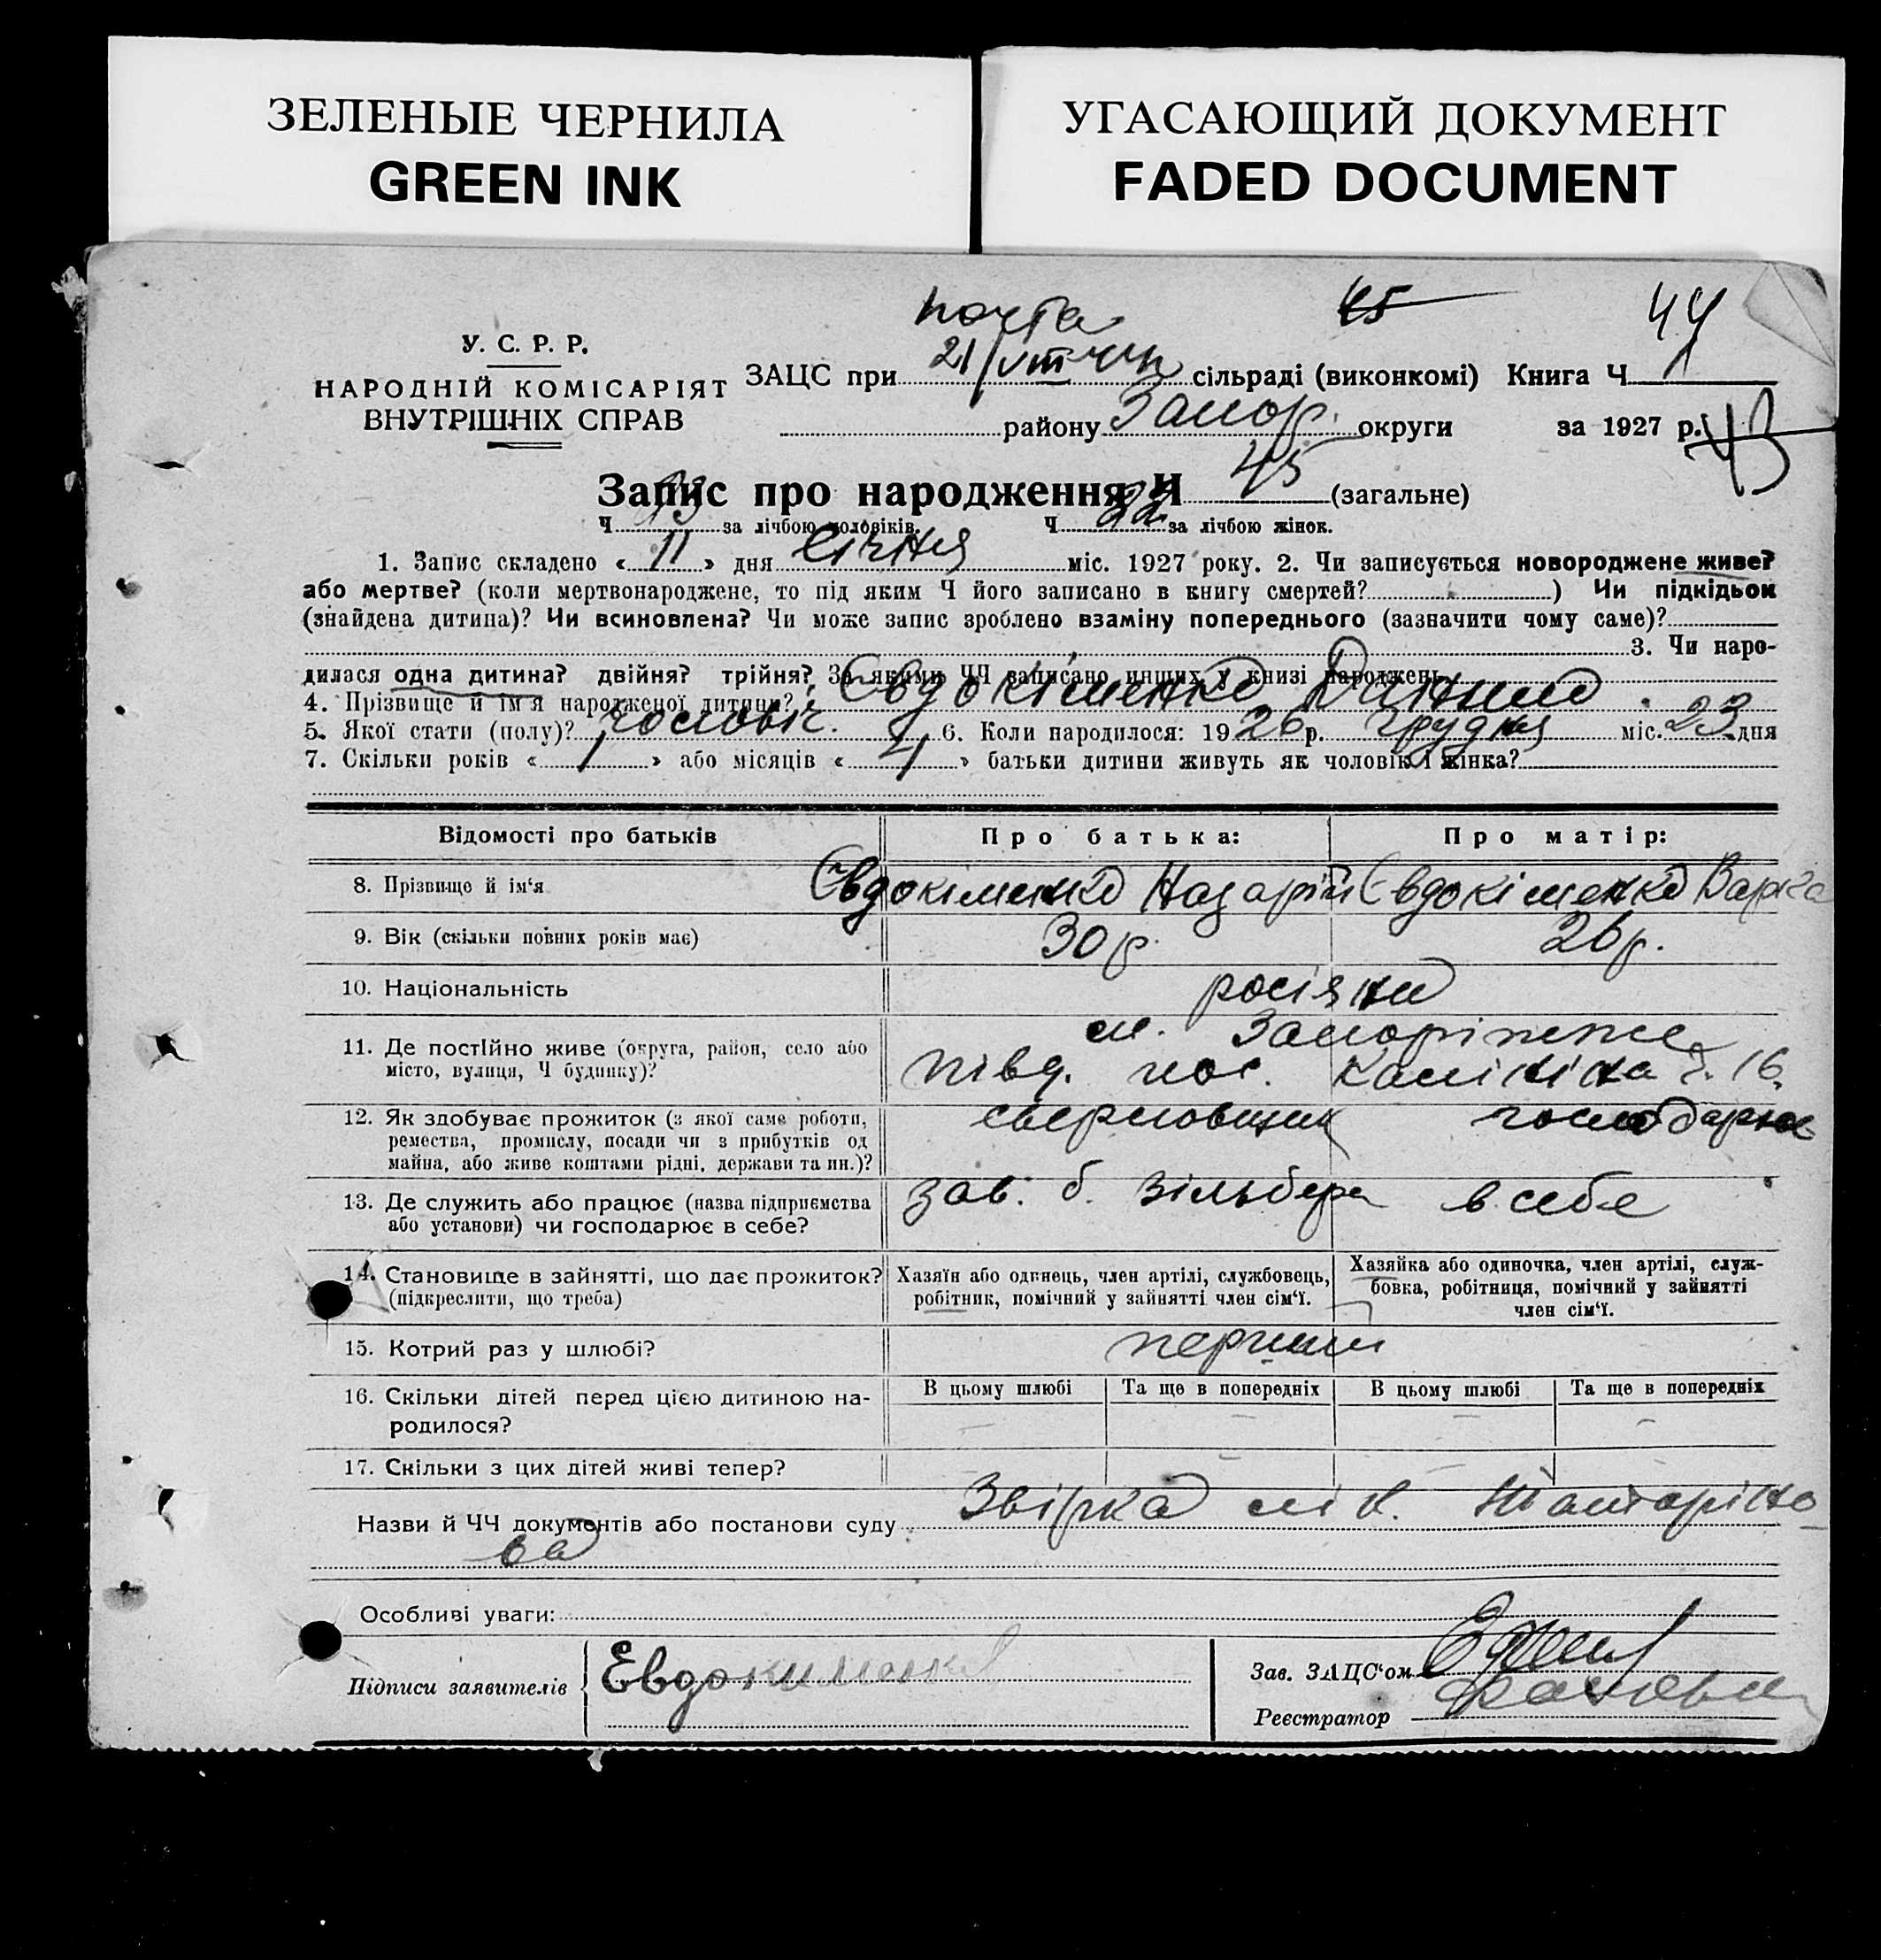 ЗЕЛЕНЫЕ ЧЕРНИЛА
GREEN INK
УГАСАЮЩИЙ ДОКУМЕНТ
FADED DOCUMENT
почта
45
44
У. С. Р. Р.
НАРОДНІЙ КОМІСАРІЯТ
ВНУТРІШНІХ СПРАВ
ЗАЦС при 21/VIII сільраді (виконкомі) Книга Ч
району Запор. округи за 1927 р. 43
Запис про народження Ч 45 (загальне)
Ч 23 за лічбою чоловіків. Ч 22 за лічбою жінок.
1. Запис складено « 11 » дня січня міс. 1927 року. 2. Чи записується новороджене живе?
або мертве? (коли мертвонароджене, то під яким Ч його записано в книгу смертей? ) Чи підкідьок
(знайдена дитина)? Чи всиновлена? Чи може запис зроблено взаміну попереднього (зазначити чому саме)?
3. Чи наро-
дилася одна дитина? двійня? трійня? За якими ЧЧ записано инших у книзі народжень
4. Прізвище й ім'я народженої дитини? Євдокіменко Данило
5. Якої стати (полу)? чоловіч. 6. Коли народилося: 1926 р. грудня міс. 23 дня
7. Скільки років « 1 » або місяців « 4 » батьки дитини живуть як чоловік і жінка?
Відомості про батьків Про батька: Про матір:
8. Прізвище й ім'я Євдокіменко Назарій Євдокіменко Варка
9. Вік (скільки повних років має) 30 р. 26 р.
10. Національність росіяни
11. Де постійно живе (округа, район, село або місто, вулиця, Ч будинку)? м. Запоріжже
півд. пос. Калініна ч. 16.
12. Як здобуває прожиток (з якої саме роботи, ремества, промислу, посади чи з прибутків од майна, або живе коштами рідні, держави та ин.)? сверловщик господарює
13. Де служить або працює (назва підприємства або установи) чи господарює в себе? зав. б. Зільбера в себе
14. Становище в зайнятті, що дає прожиток? (підкреслити, що треба)
Хазяїн або одинець, член артілі, службовець, робітник, помічний у зайнятті член сім'ї.
Хазяйка або одиночка, член артілі, служ-
бовка, робітниця, помічний у зайнятті
член сім'ї.
15. Котрий раз у шлюбі? перший
16. Скільки дітей перед цією дитиною на-
родилося?
В цьому шлюбі Та ще в попередніх В цьому шлюбі Та ще в попередніх
17. Скільки з цих дітей живі тепер?
Назви й ЧЧ документів або постанови суду Звірка
Особливі уваги:
Підписи заявителів Евдокименко
Зав. ЗАЦС'ом
Реєстратор